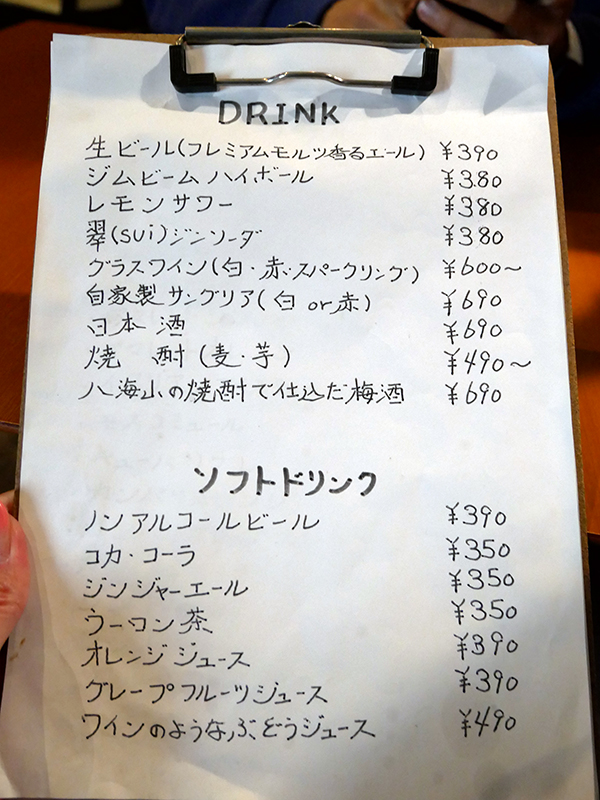 DRINK
生ビール(プレミアムモルツ香るエール) ¥390
ジムビームハイボール ¥380
レモンサワー ¥380
翠(sui)ジンソーダ ¥380
グラスワイン(白・赤・スパークリング) ¥600〜
自家製サングリア(白or赤) ¥690
日本酒 ¥690
焼 酎(麦・芋) ¥490〜
八海山の焼酎で仕込だ梅酒 ¥690
ソフトドリンク
ノンアルコールビール ¥390
コカ・コーラ ¥350
ジンジャーエール ¥350
ウーロン茶 ¥350
オレンジジュース ¥390
グレープフルーツジュース ¥390
ワインのような、ぶどうジュース ¥490